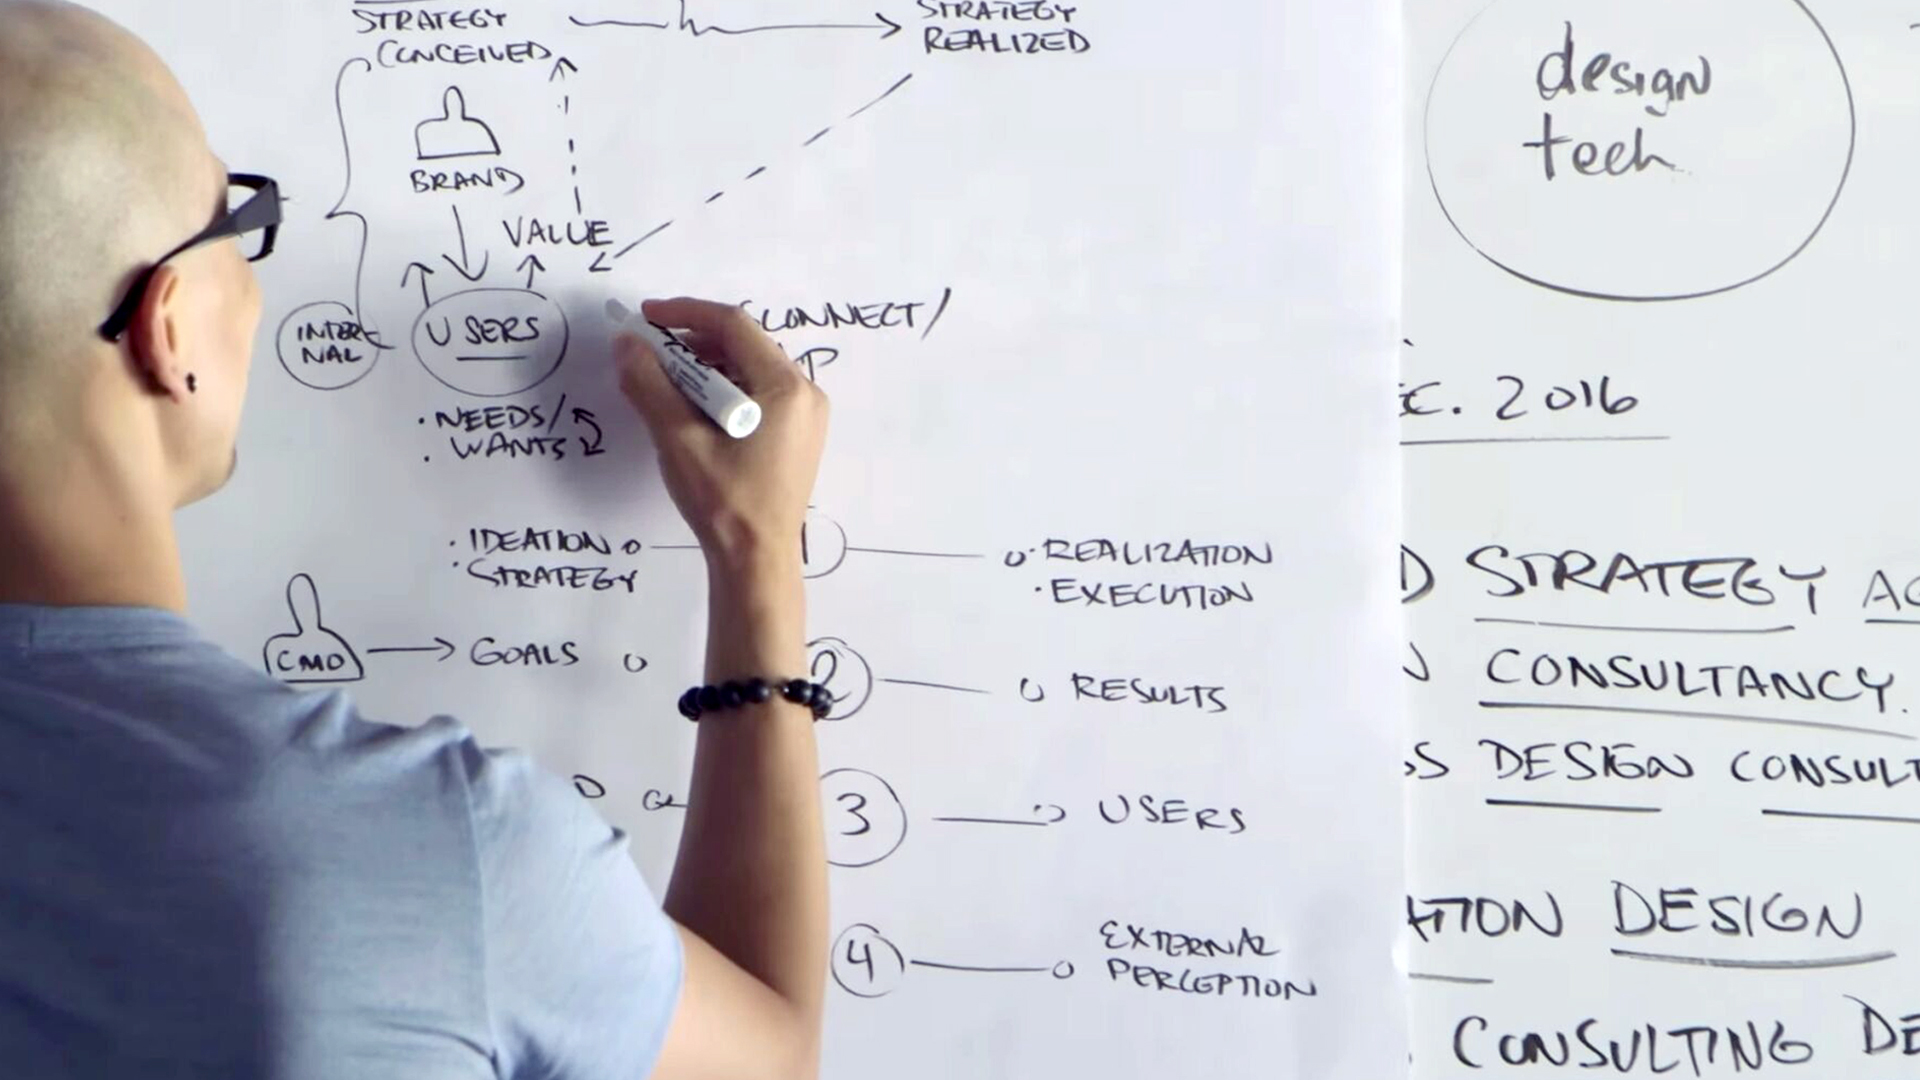 STRATEGY
CONCEIVED
STRATEGY
REALIZED
BRAND
VALUE
INTER
NAL
USERS
· NEEDS/
· WANTS
· IDEATION
· STRATEGY
1
· REALIZATION
· EXECUTION
CMO
GOALS
2
RESULTS
3
USERS
4
EXTERNAL
PERCEPTION
design
tech
2016
STRATEGY
CONSULTANCY.
DESIGN
DESIGN
CONSULTING